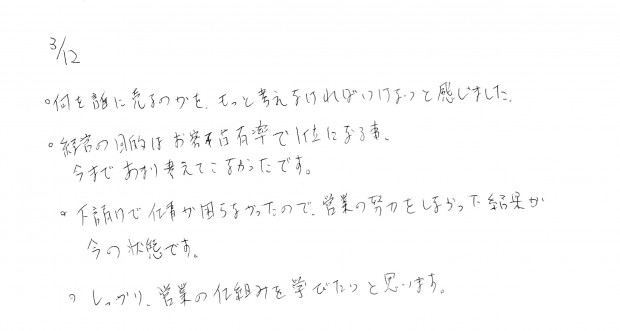 3/12
・何を誰に売るのかを、もっと考えなければいけないと感じました。
・経営の目的はお客占有率で1位になる事、
今まであまり考えてこなかったです。
・下請けで仕事が困らなかったので、営業の努力をしなかった結果が
今の状態です。
・しっかり、営業の仕組みを学びたいと思います。